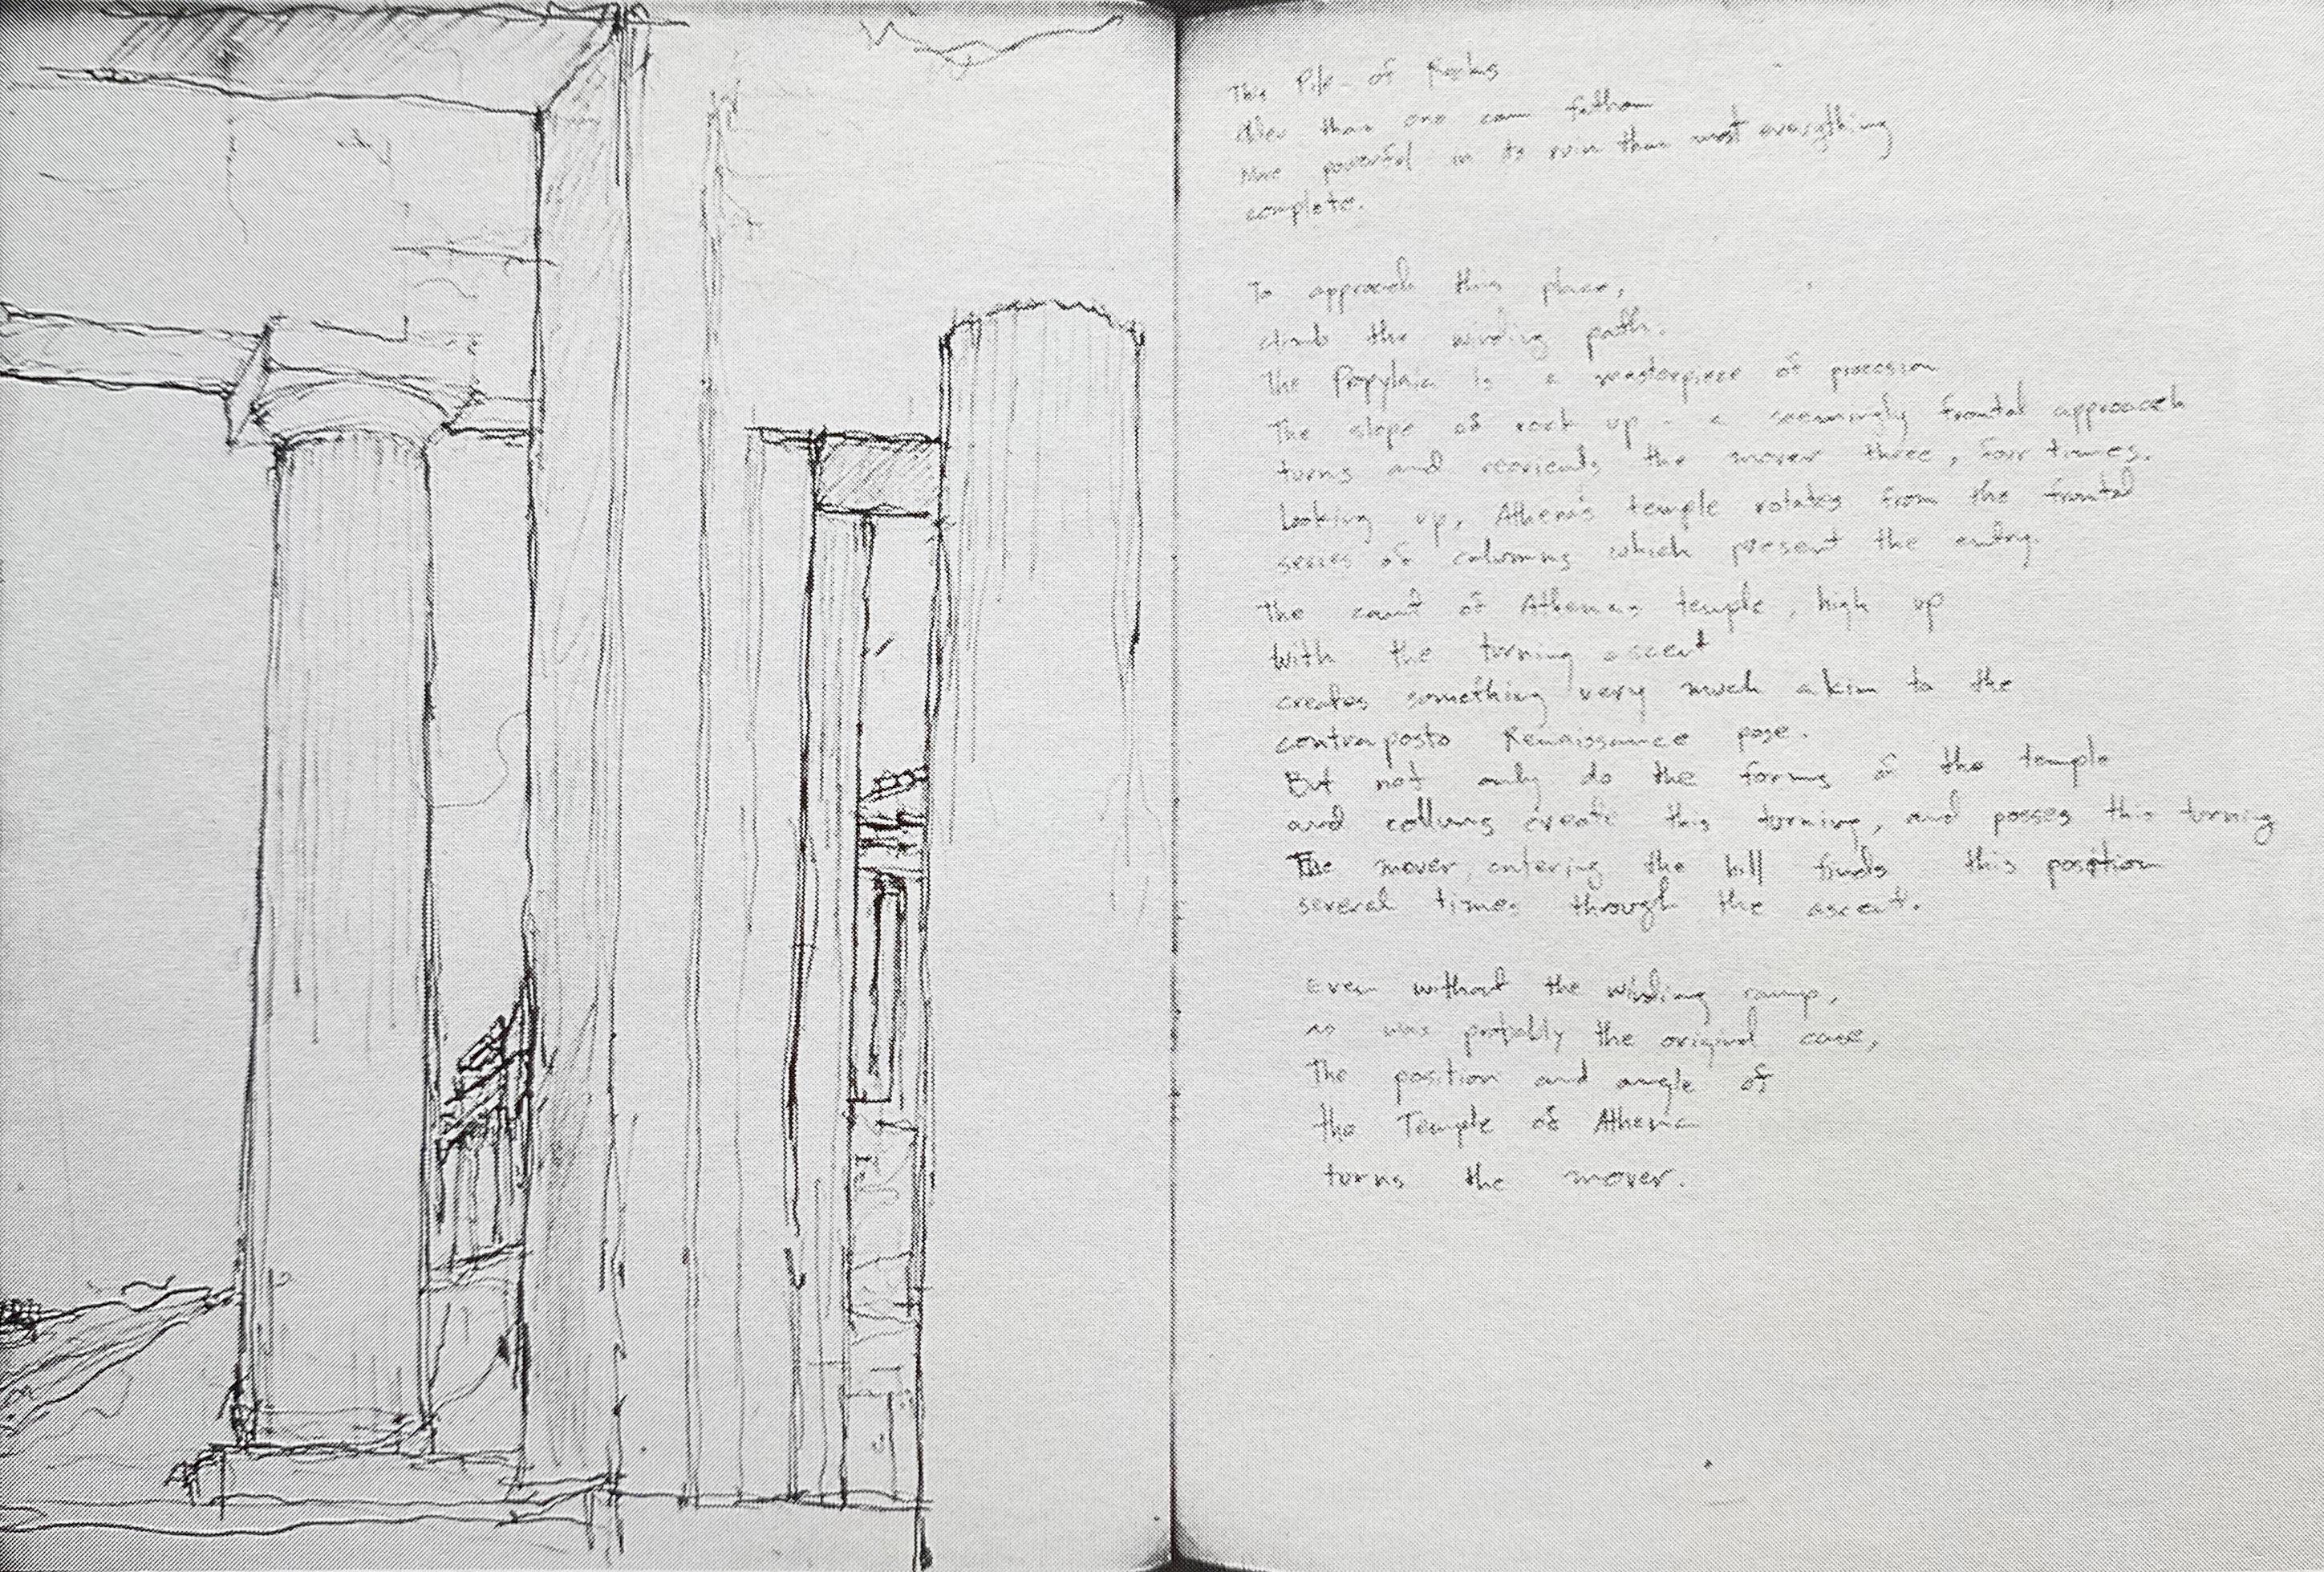 This Pile of Rocks
older than one can fathom
More powerful in its ruin than most everything
complete.
To approach this place,
climb the winding path.
The Propylaia is a masterpiece of procession
The slope of rock up - a seemingly frontal approach
turns and reorients the mover three, four times.
Looking up, Athena's temple rotates from the frontal
series of columns which present the entry.
The cant of Athena's temple, high up
with the turning ascent
creates something very much akin to the
contraposto Renaissance pose.
But not only do the forms of the temple
and collums create this turning, and posses this turning
The mover, entering the hill finds this position
several times through the ascent.
Even without the winding ramp,
as was probably the original case,
The position and angle of
the Temple of Athena
turns the mover.